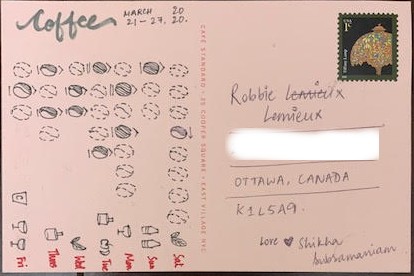 Coffee
MARCH 20
21-27. 20.
CAFE STANDARD · 25 COOPER SQUARE · EAST VILLAGE NYC
Fri
Thurs
Wed
Tue
Mon
Sun
Sat
1¢
Robbie Lemieux
Lemieux
OTTAWA, CANADA
K1L5A9.
Love Shikha
Subramaniam